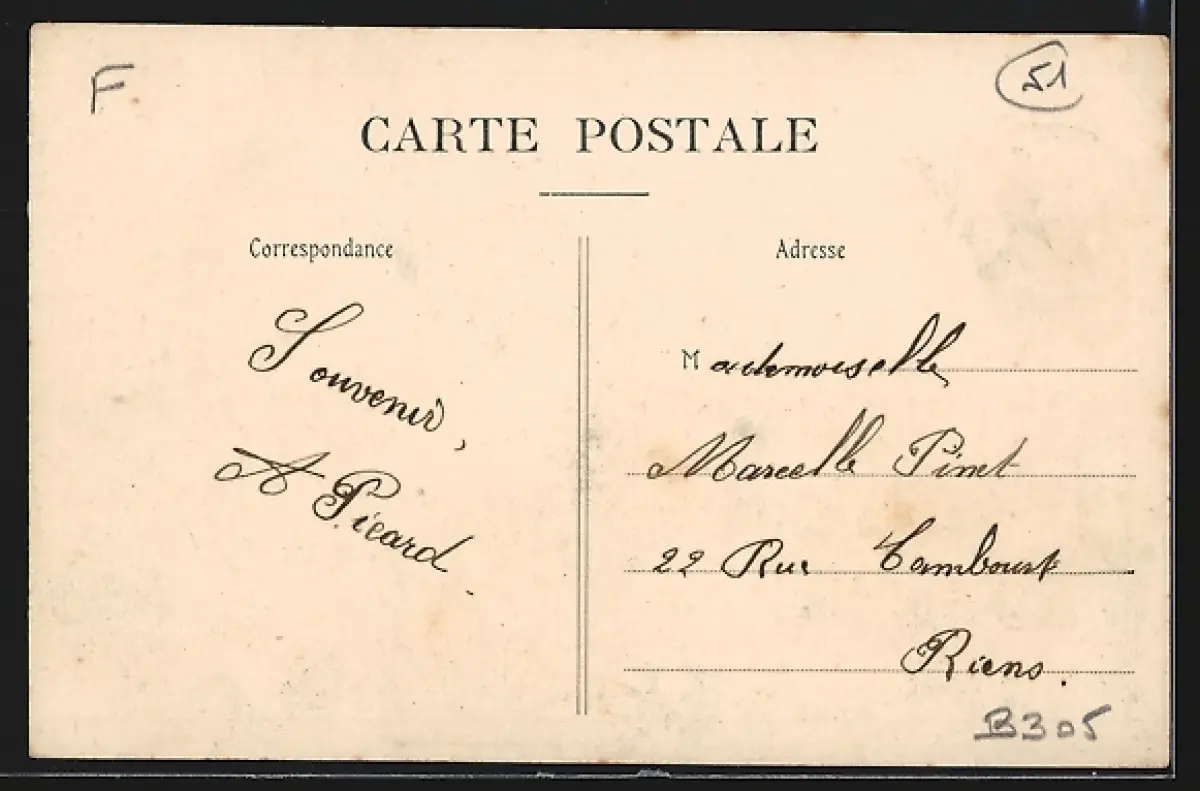 F
51
CARTE POSTALE
Correspondance
Souvenir,
A Picard
Adresse
Mademoiselle
Marcelle Pinet
22 Rue
B305